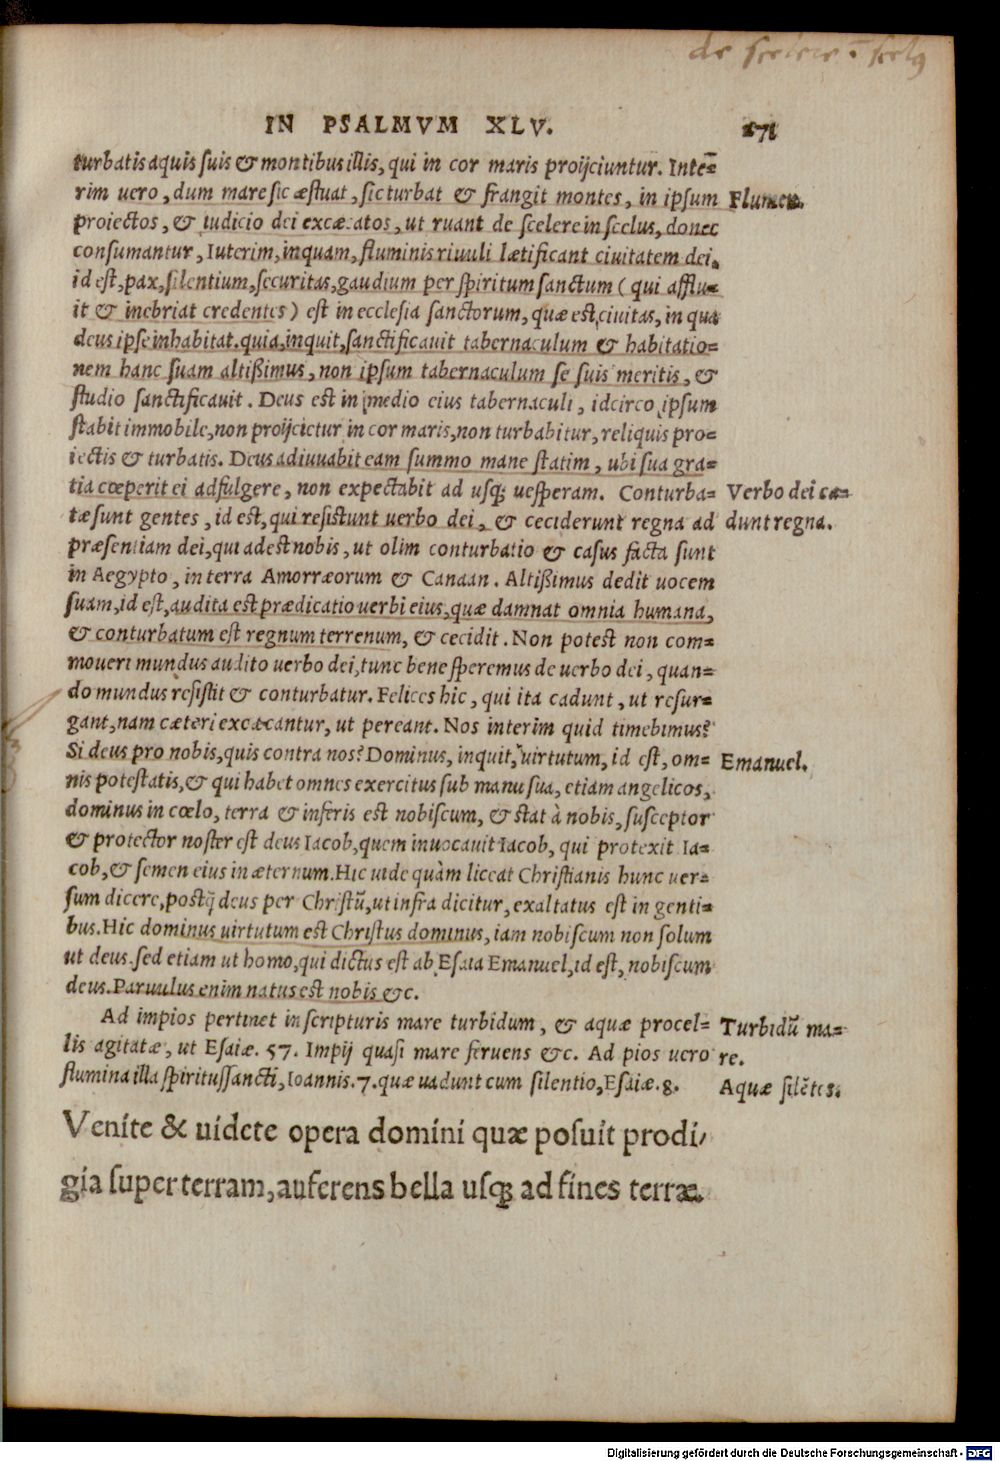 de scelere ī scelꝰ
IN PSALMVM XLV. 171
turbatis aquis suis & montibus illis, qui in cor maris proijciuntur. Intē=
rim uero, dum mare sic æstuat, sic turbat & frangit montes, in ipsum
Flumen.
proiectos, & iudicio dei excæcatos, ut ruant de scelere in scelus, donec
consumantur, Iuterim, inquam, fluminis riuuli lætificant ciuitatem dei,
id est, pax, silentium, securitas, gaudium per spiritum sanctum ( qui afflu=
it & inebriat credentes ) est in ecclesia sanctorum, quæ est ciuitas, in qua
deus ipse inhabitat. quia, inquit, sanctificauit tabernaculum & habitatio=
nem hanc suam altißimus, non ipsum tabernaculum se suis meritis, &
studio sanctificauit. Deus est in medio eius tabernaculi, idcirco ipsum
stabit immobile, non proijcietur in cor maris, non turbabitur, reliquis pro=
iectis & turbatis. Deus adiuuabit eam summo mane statim, ubi sua gra=
tia cœperit ei adfulgere, non expectabit ad usq; uesperam. Conturba=
Verbo dei ca=
tæ sunt gentes, id est, qui resistunt uerbo dei, & ceciderunt regna ad
dunt regna.
præsentiam dei, qui adest nobis, ut olim conturbatio & casus facta sunt
in Aegypto, in terra Amorræorum & Canaan. Altißimus dedit uocem
suam, id est, audita est prædicatio uerbi eius, quæ damnat omnia humana,
& conturbatum est regnum terrenum, & cecidit. Non potest non com=
moueri mundus audito uerbo dei, tunc bene speremus de uerbo dei, quan=
do mundus resistit & conturbatur. Felices hic, qui ita cadunt, ut resur=
gant, nam cæteri excæcantur, ut pereant. Nos interim quid timebimus?
Si deus pro nobis, quis contra nos? Dominus, inquit, uirtutum, id est, om=
Emanuel.
nis potestatis, & qui habet omnes exercitus sub manu sua, etiam angelicos,
dominus in cœlo, terra & inferis est nobiscum, & stat à nobis, susceptor
& protector noster est deus Iacob, quem inuocauit Iacob, qui protexit Ia=
cob, & semen eius in æternum. Hic uide quàm liceat Christianis hunc uer=
sum dicere, postq̄ deus per Christū, ut infra dicitur, exaltatus est in genti=
bus. Hic dominus uirtutum est Christus dominus, iam nobiscum non solum
ut deus. sed etiam ut homo, qui dictus est ab Esaia Emanuel, id est, nobiscum
deus. Paruulus enim natus est nobis &c.
Ad impios pertinet in scripturis mare turbidum, & aquæ procel=
Turbidū ma=
lis agitatæ, ut Esaiæ. 57. Impij quasi mare feruens &c. Ad pios uero
re.
flumina illa spiritussancti, Ioannis. 7. quæ uadunt cum silentio, Esaiæ. 8.
Aquæ silētes.
Venite & uidete opera domini quæ posuit prodi/
gia super terram, auferens bella usq; ad fines terræ.
Digitalisierung gefördert durch die Deutsche Forschungsgemeinschaft - DFG